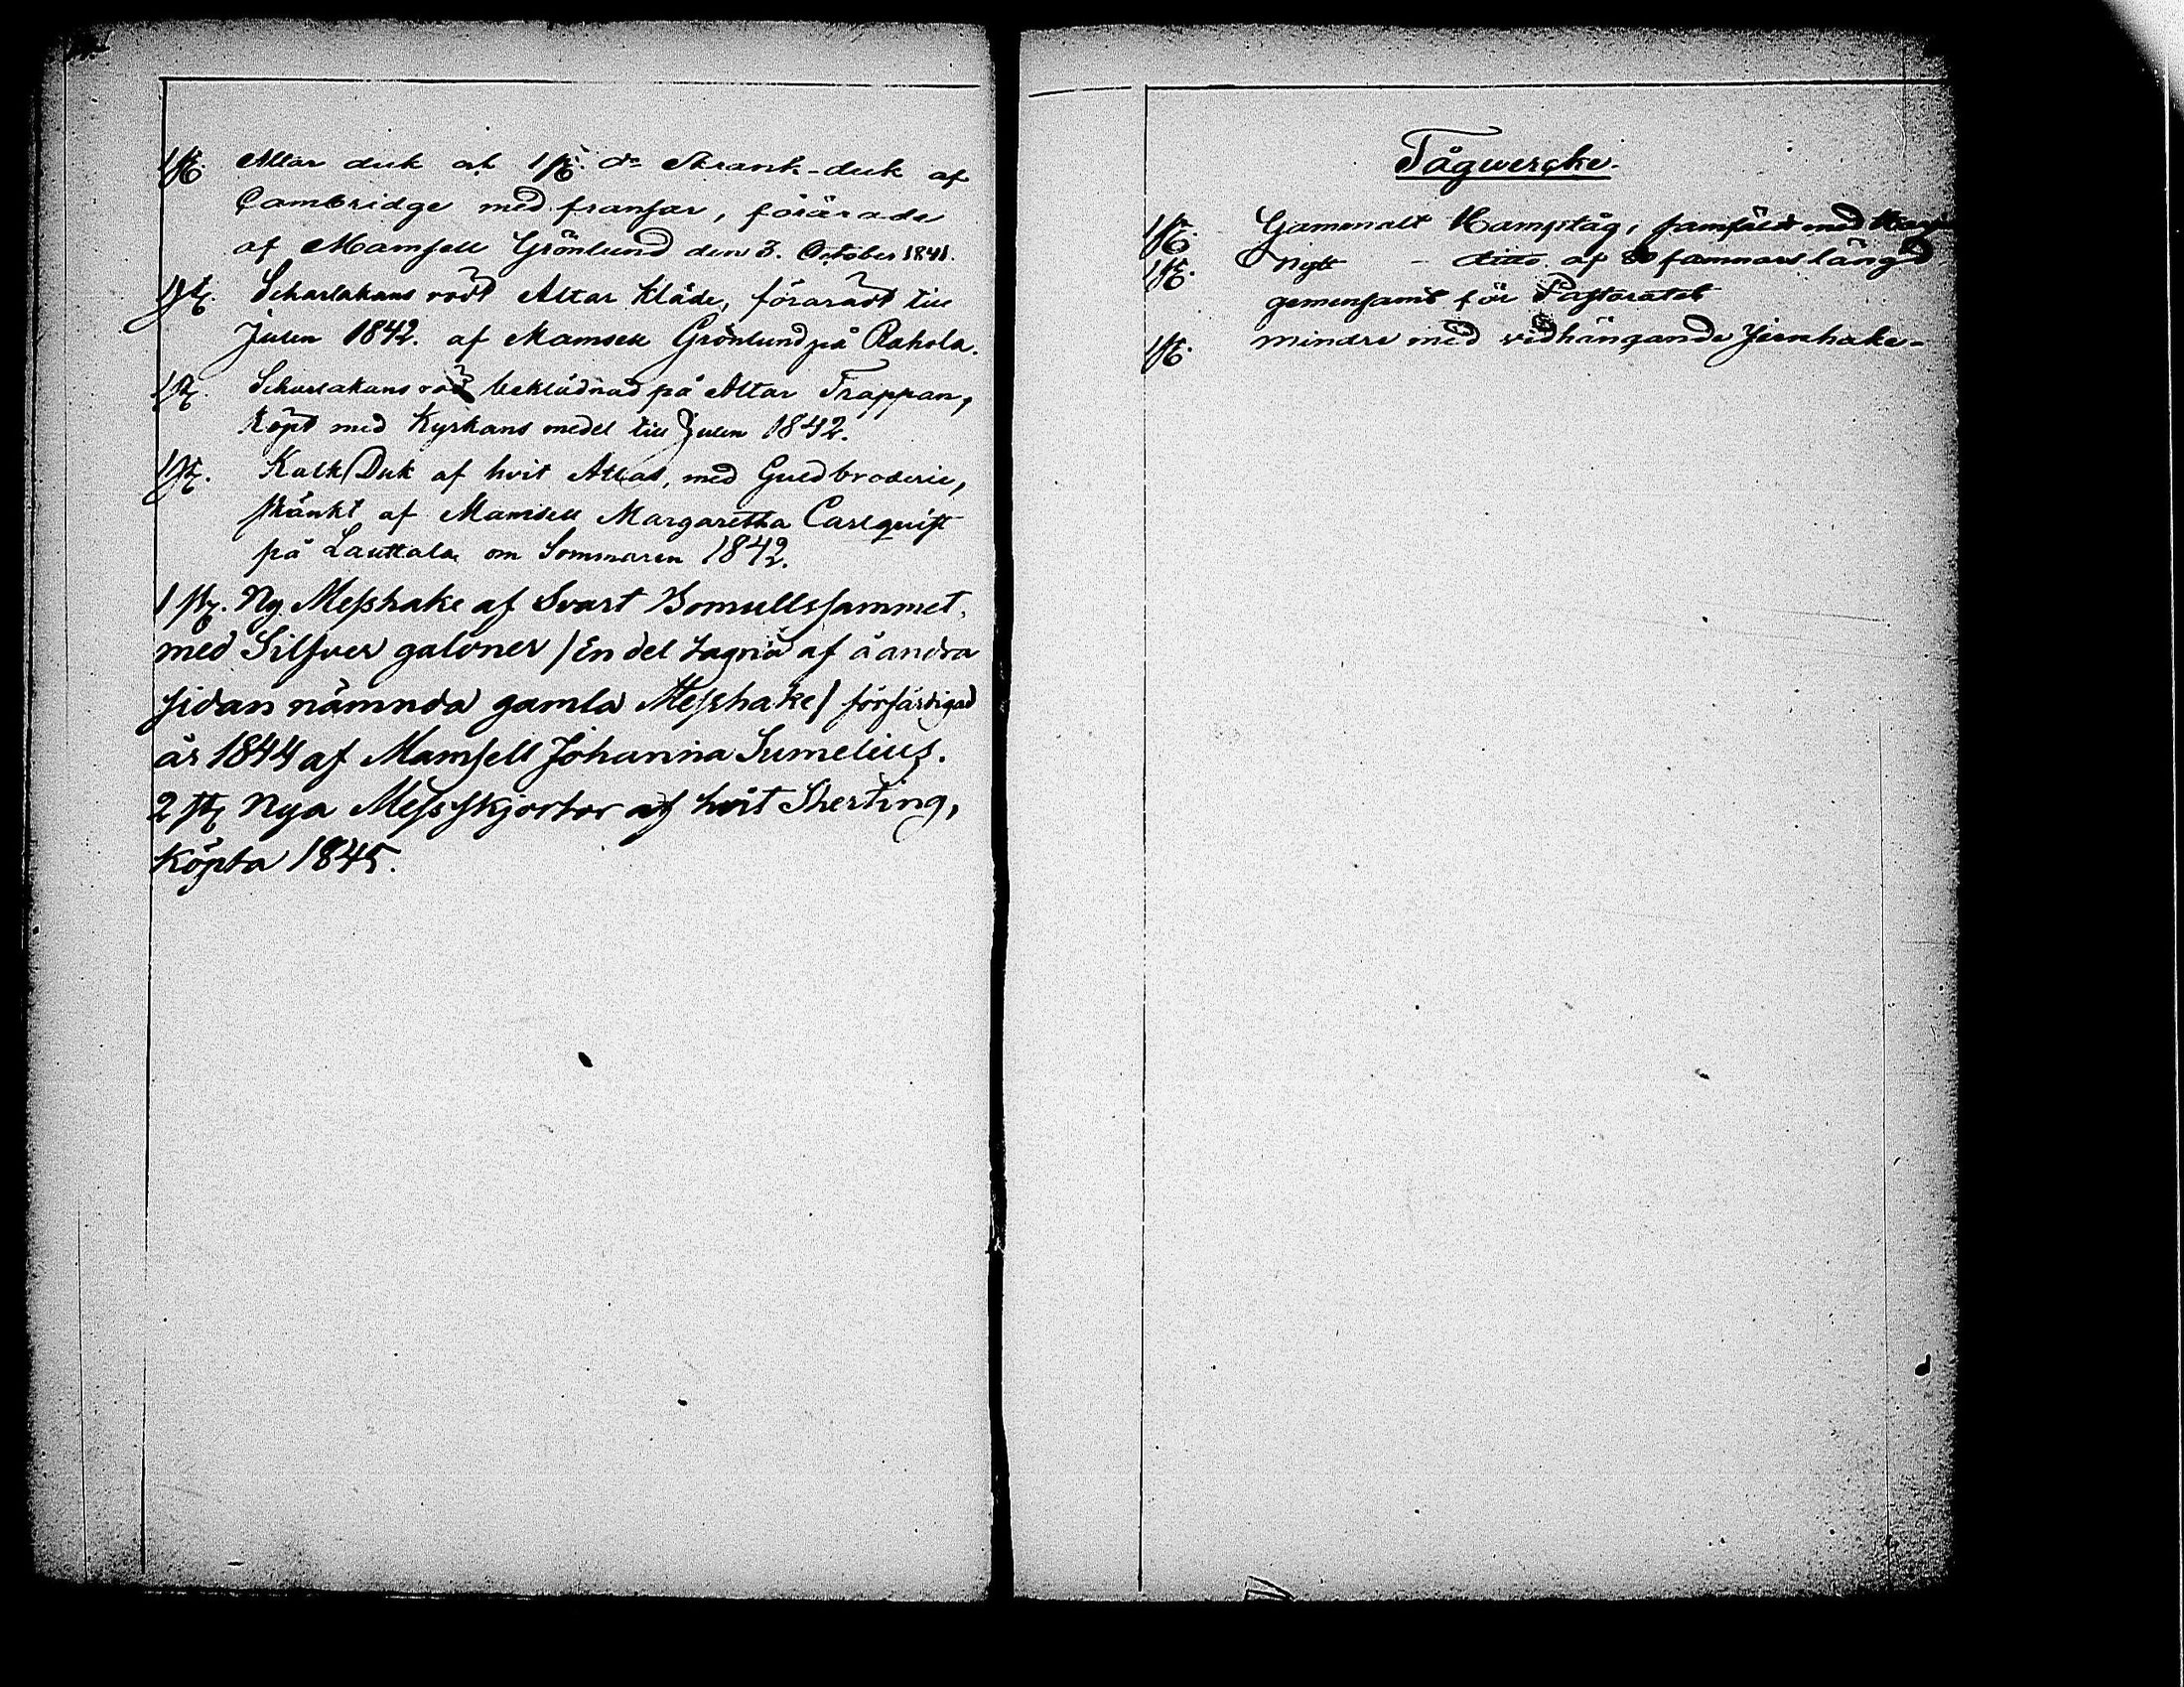 1 st. Altar duk och 1 st. do Skrank-duk af
Cambridge med fransar, förärade
af Mamsell Grönlund den 3. October 1841.
1 st. Scharlakans rödt Altar Kläde, föräradt till
Julen 1842. af Mamsell Grönlund på Rahola.
1 st. Scharlakans röd beklädnad på Altar Trappan,
köpt med Kyrkans medel till Julen 1842.
1 st. Kalk Duk af hvit Atlas, med Guldbroderie,
skänkt af Mamsell Margaretha Carlqvist
på Lauttala om Sommaren 1842.
1 st. Ny Messhake af Svart Bomullssammet,
med Silfver galoner / En del tagna af å andra
sidan nämnda gamla Messhake / förfärdigad
år 1844 af Mamsell Johanna Sumelius.
2 st. Nya Messskjortor af hvit Sherting,
köpta 1845.
Tågwercke.
1 st. Gammalt Hampståg, samfäldt med
1 st. Nytt - ditto af famnars längd
gemensamt för Pastoratet
1 st. mindre med vidhängande Jernhake-